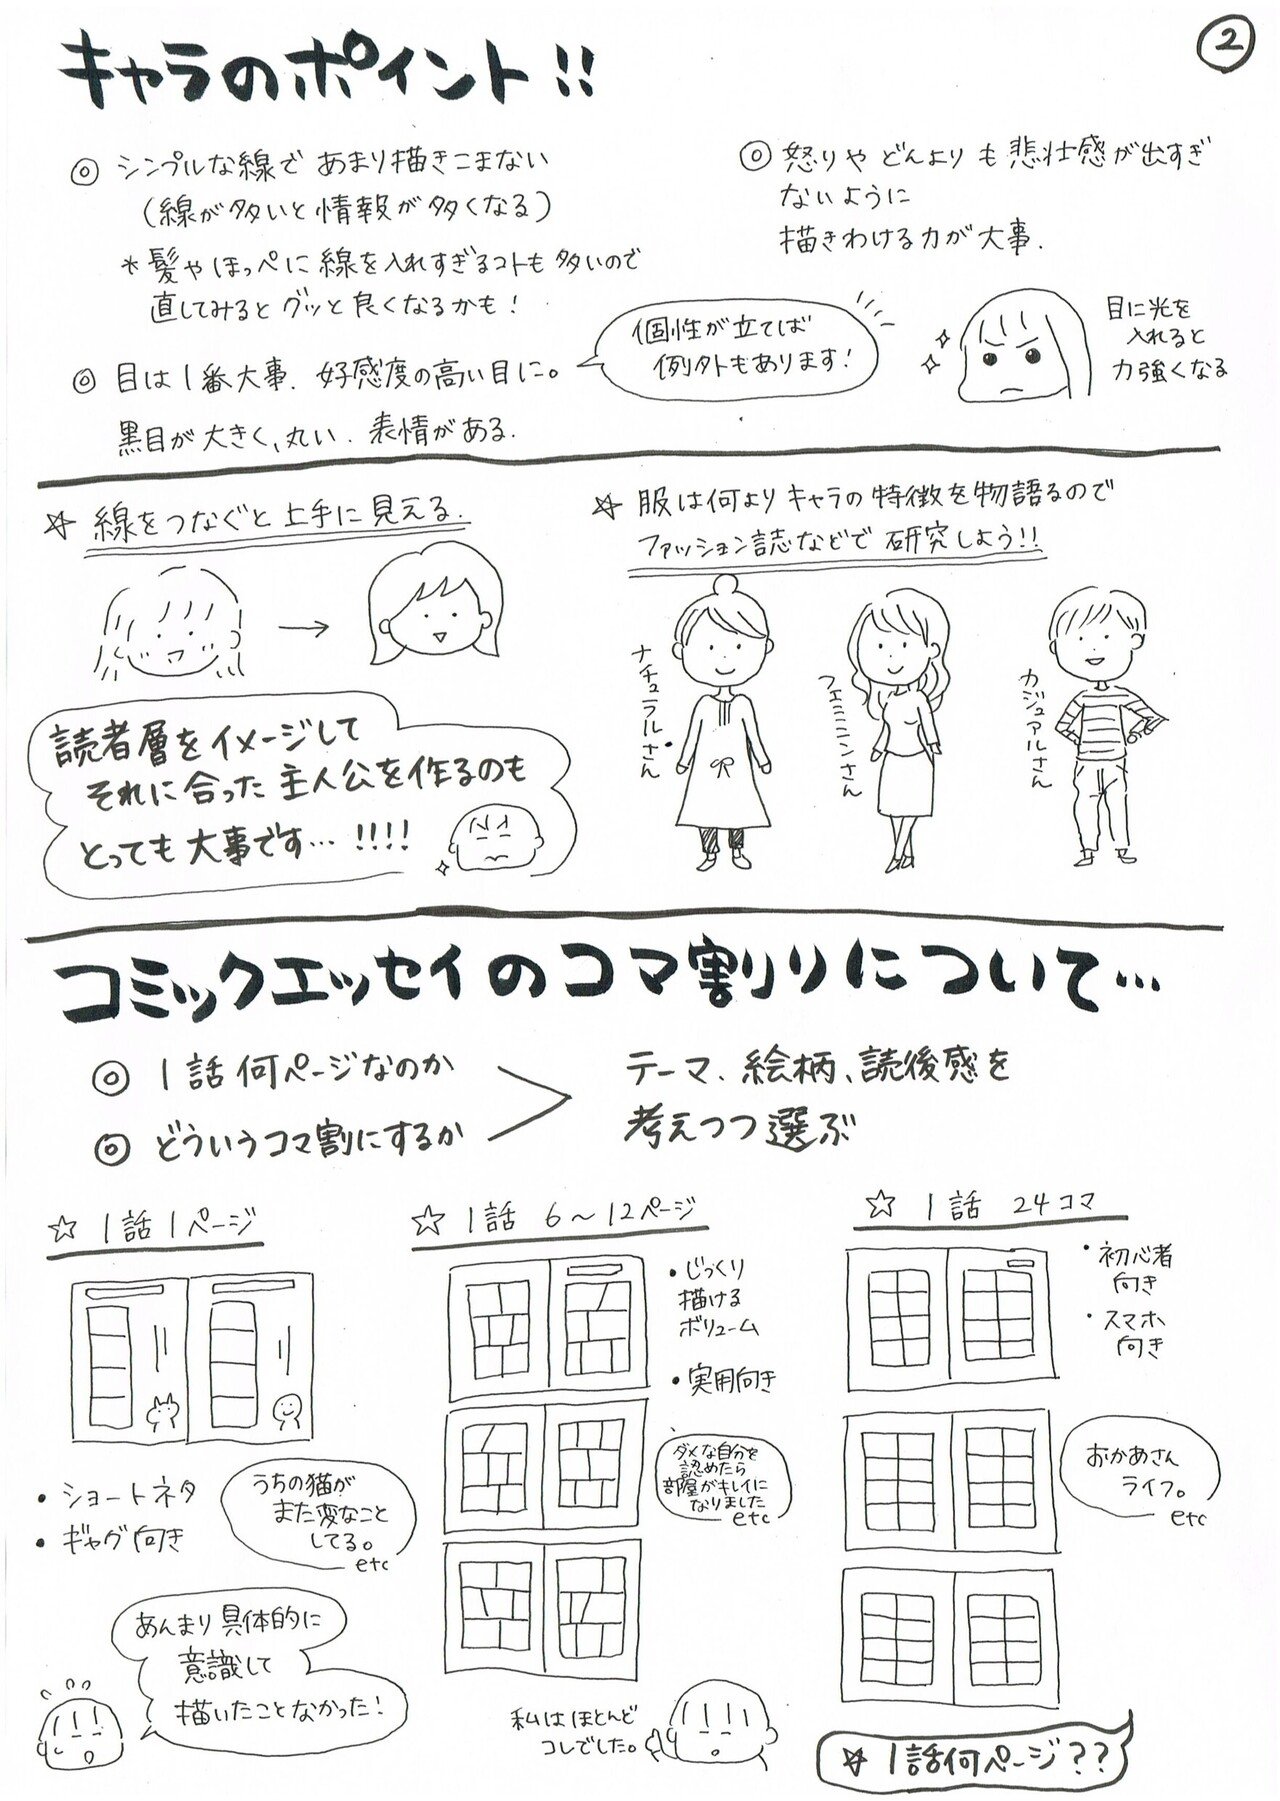 ②
キャラのポイント!!
◎ シンプルな線で あまり描きこまない
(線が多いと情報が多くなる)
*髪やほっぺに線を入れすぎるコトも多いので
直してみるとグッと良くなるかも!
◎ 目は1番大事. 好感度の高い目に。
黒目が大きく、丸い. 表情がある.
個性が立てば
例外もあります!
◎ 怒りや どんよりも悲壮感が出すぎ
ないように
描きわける力が大事.
目に光を
入れると
力強くなる
☆ 線をつなぐと上手に見える.
→
読者層をイメージして
それに合った主人公を作るのも
とっても大事です…!!!!
☆ 服は何よりキャラの特徴を物語るので
ファッション誌などで研究しよう!!
ナチュラルさん
フェミニンさん
カジュアルさん
コミックエッセイのコマ割りについて…
◎ 1話何ページなのか
◎ どういうコマ割にするか
テーマ、絵柄、読後感を
考えつつ選ぶ
☆ 1話1ページ
・ショートネタ
・ギャグ向き
うちの猫が
また変なこと
してる。
etc
あんまり具体的に
意識して
描いたことなかった!
☆ 1話 6~12ページ
・じっくり
描ける
ボリューム
・実用向き
ダメな自分を
認めたら
部屋がキレイに
なりました
etc
私はほとんど
コレでした。
☆ 1話 24コマ
・初心者
向き
・スマホ
向き
おかあさん
ライフ。
etc
☆ 1話何ページ??